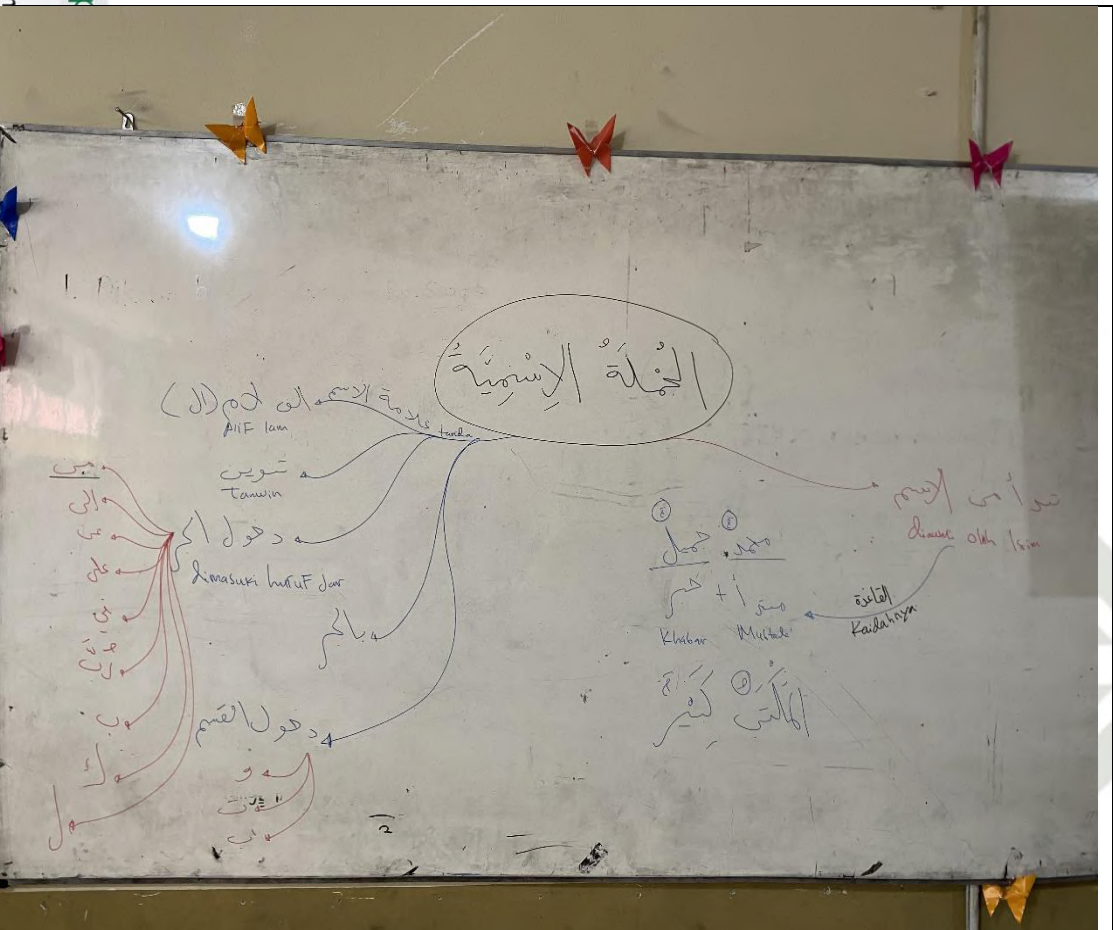 الجُمْلَةُ الإِسْمِيَّةُ
علامة الاسم
tanda
الف لام (ال)
Alif lam
تنوين
Tanwin
دخول الجر
dimasuki huruf Jar
من
إلى
عن
على
في
رب
ب
ك
ل
بالجر
دخول القسم
و
ت
ب
تبدأ من الاسم
dimulai oleh Isim
القاعدة
Kaidahnya
محمد جميل
مبتدأ + خبر
Khabar Mubtada'